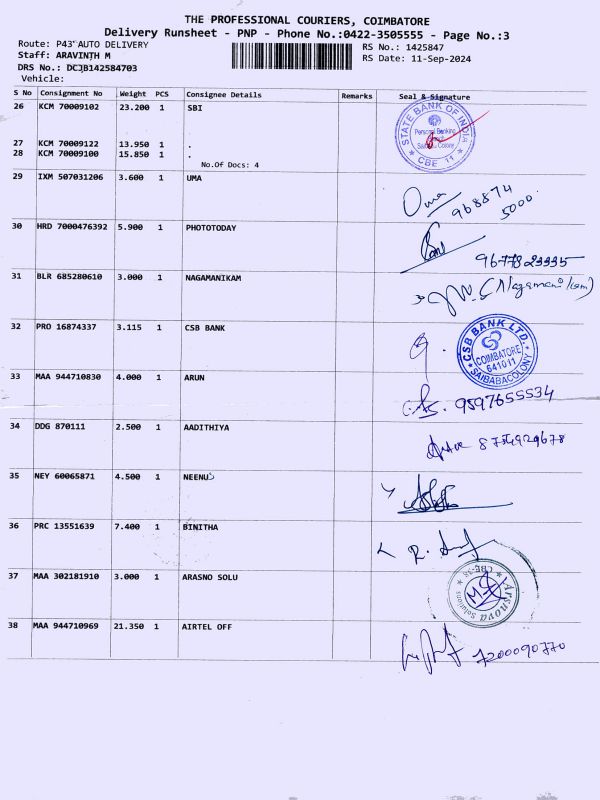 THE PROFESSIONAL COURIERS, COIMBATORE
Delivery Runsheet - PNP - Phone No.:0422-3505555 - Page No.:3
Route: P43 AUTO DELIVERY
RS No.: 1425847
Staff: ARAVINTH M
RS Date: 11-Sep-2024
DRS No.: DCJB142584703
Vehicle:
S No Consignment No Weight PCS Consignee Details Remarks Seal & Signature
26 KCM 70009102 23.200 1 SBI
STATE BANK OF INDIA
Personal Banking
CBE 11
27 KCM 70009122 13.950 1 .
28 KCM 70009100 15.850 1 .
No.Of Docs: 4
29 IXM 507031206 3.600 1 UMA
Uma 968874
5000.
30 HRD 7000476392 5.900 1 PHOTOTODAY
9677823335
31 BLR 685280610 3.000 1 NAGAMANIKAM
32 PRO 16874337 3.115 1 CSB BANK
CSB BANK LTD.
COIMBATORE
641011
SAIBABACOLONY
33 MAA 944710830 4.000 1 ARUN
9597655534
34 DDG 870111 2.500 1 AADITHIYA
35 NEY 60065871 4.500 1 NEENU
36 PRC 13551639 7.400 1 BINITHA
37 MAA 302181910 3.000 1 ARASNO SOLU
Arsnova Solutions
CBE-38
38 MAA 944710969 21.350 1 AIRTEL OFF
7200090770